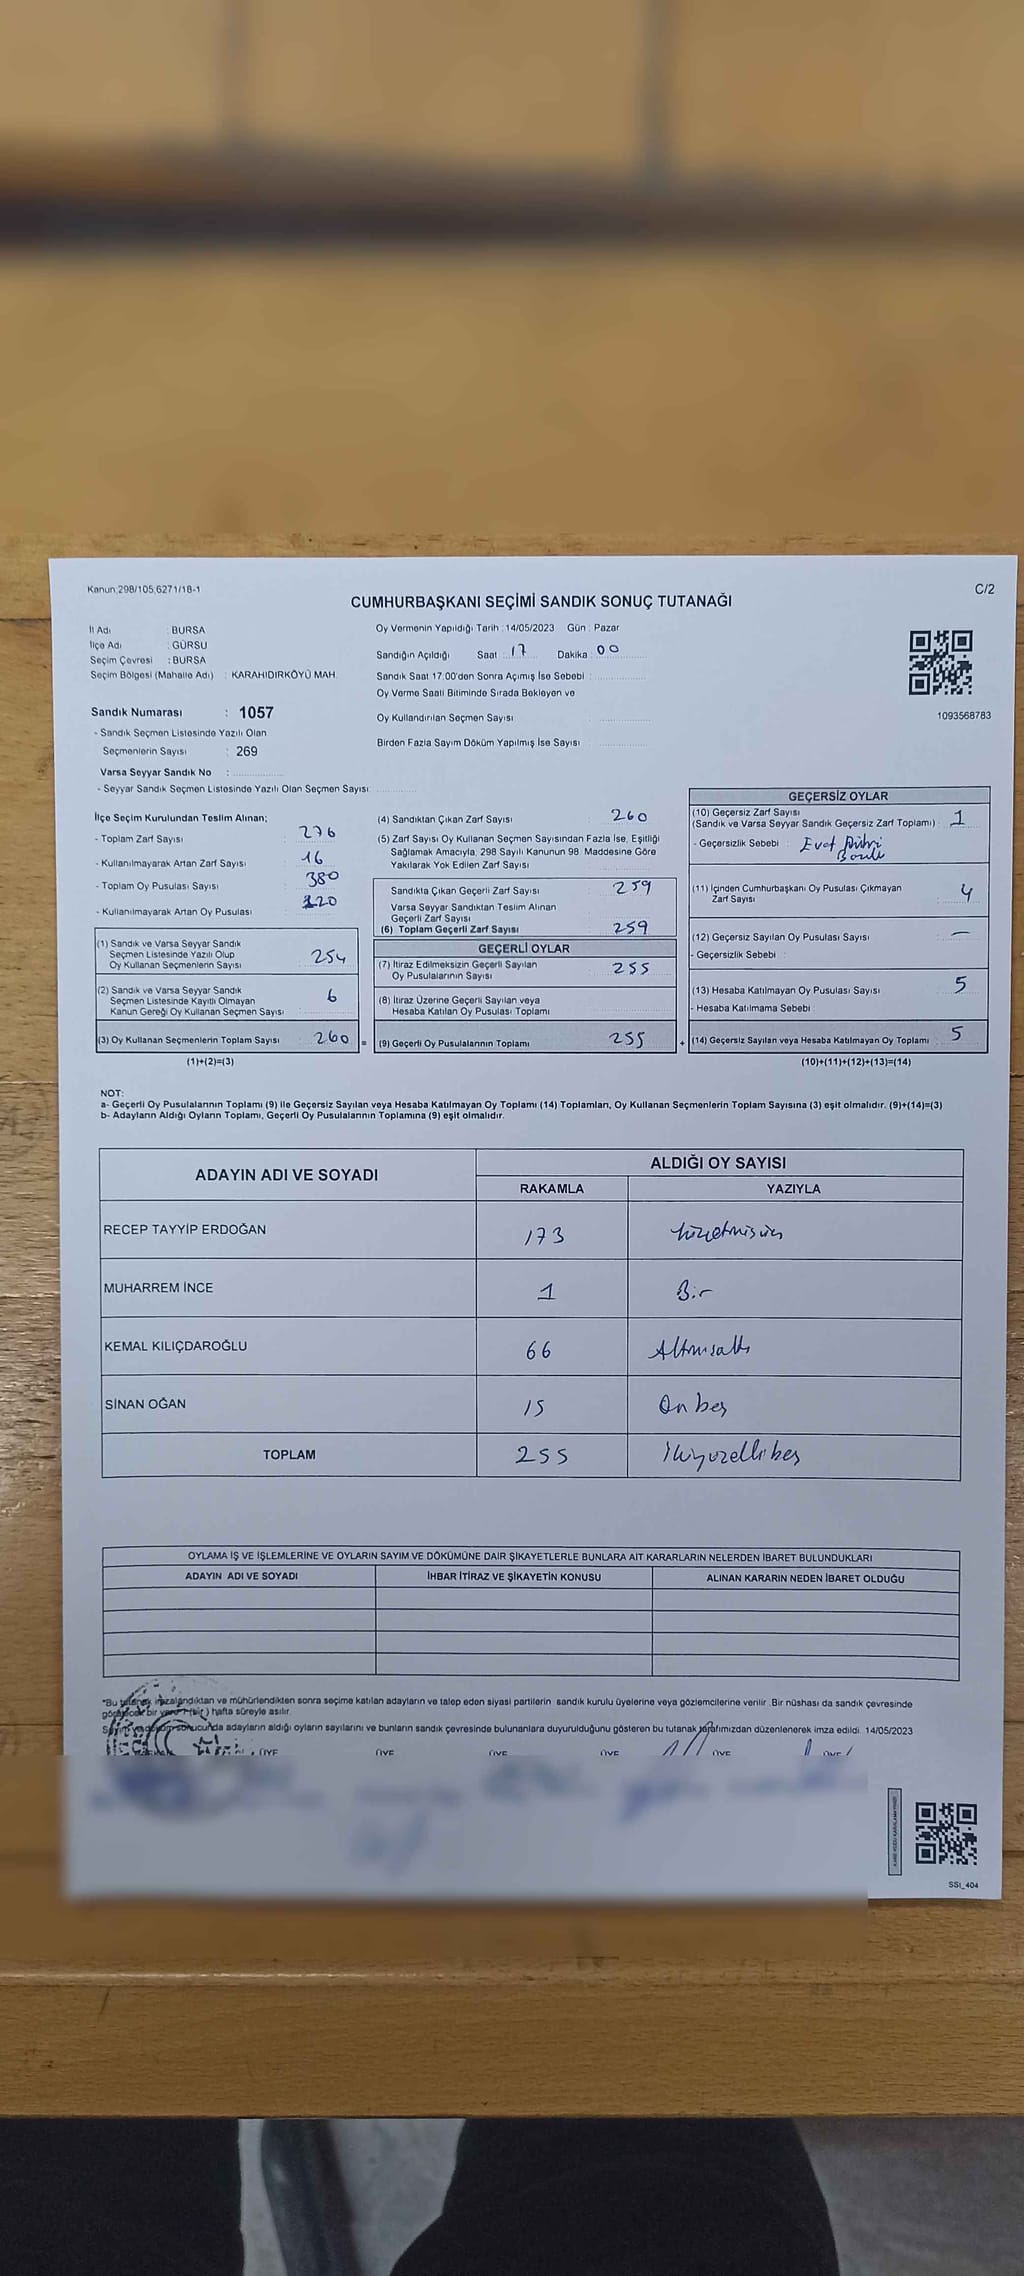 Kanun;298/105;6271/18-1
C/2
CUMHURBAŞKANI SEÇİMİ SANDIK SONUÇ TUTANAĞI
İl Adı : BURSA
İlçe Adı : GÜRSU
Seçim Çevresi : BURSA
Seçim Bölgesi (Mahalle Adı) : KARAHIDIRKÖYÜ MAH.
Oy Vermenin Yapıldığı Tarih :14/05/2023 Gün : Pazar
Sandığın Açıldığı Saat : 17 Dakika : 00
Sandık Saat 17.00'den Sonra Açımış İse Sebebi :
Oy Verme Saati Bitiminde Sırada Bekleyen ve
Oy Kullandırılan Seçmen Sayısı :
Birden Fazla Sayım Döküm Yapılmış İse Sayısı :
1093568783
Sandık Numarası : 1057
- Sandık Seçmen Listesinde Yazılı Olan
Seçmenlerin Sayısı : 269
Varsa Seyyar Sandık No :
- Seyyar Sandık Seçmen Listesinde Yazılı Olan Seçmen Sayısı:
İlçe Seçim Kurulundan Teslim Alınan;
- Toplam Zarf Sayısı : 276
- Kullanılmayarak Artan Zarf Sayısı : 16
- Toplam Oy Pusulası Sayısı : 380
- Kullanılmayarak Artan Oy Pusulası : 120
(1) Sandık ve Varsa Seyyar Sandık
Seçmen Listesinde Yazılı Olup
Oy Kullanan Seçmenlerin Sayısı : 254
(2) Sandık ve Varsa Seyyar Sandık
Seçmen Listesinde Kayıtlı Olmayan
Kanun Gereği Oy Kullanan Seçmen Sayısı : 6
(3) Oy Kullanan Seçmenlerin Toplam Sayısı : 260 =
(1)+(2)=(3)
(4) Sandıktan Çıkan Zarf Sayısı : 260
(5) Zarf Sayısı Oy Kullanan Seçmen Sayısından Fazla İse, Eşitliği
Sağlamak Amacıyla; 298 Sayılı Kanunun 98. Maddesine Göre
Yakılarak Yok Edilen Zarf Sayısı :
Sandıkta Çıkan Geçerli Zarf Sayısı : 259
Varsa Seyyar Sandıktan Teslim Alınan
Geçerli Zarf Sayısı :
(6) Toplam Geçerli Zarf Sayısı : 259
GEÇERLİ OYLAR
(7) İtiraz Edilmeksizin Geçerli Sayılan
Oy Pusulalarının Sayısı : 255
(8) İtiraz Üzerine Geçerli Sayılan veya
Hesaba Katılan Oy Pusulası Toplamı :
(9) Geçerli Oy Pusulalarının Toplamı : 255 +
GEÇERSİZ OYLAR
(10) Geçersiz Zarf Sayısı
(Sandık ve Varsa Seyyar Sandık Geçersiz Zarf Toplamı) : 1
- Geçersizlik Sebebi : Evet
(11) İçinden Cumhurbaşkanı Oy Pusulası Çıkmayan
Zarf Sayısı : 4
(12) Geçersiz Sayılan Oy Pusulası Sayısı : —
- Geçersizlik Sebebi :
(13) Hesaba Katılmayan Oy Pusulası Sayısı : 5
- Hesaba Katılmama Sebebi :
(14) Geçersiz Sayılan veya Hesaba Katılmayan Oy Toplamı : 5
(10)+(11)+(12)+(13)=(14)
NOT:
a- Geçerli Oy Pusulalarının Toplamı (9) ile Geçersiz Sayılan veya Hesaba Katılmayan Oy Toplamı (14) Toplamları, Oy Kullanan Seçmenlerin Toplam Sayısına (3) eşit olmalıdır. (9)+(14)=(3)
b- Adayların Aldığı Oyların Toplamı, Geçerli Oy Pusulalarının Toplamına (9) eşit olmalıdır.
ADAYIN ADI VE SOYADI
ALDIĞI OY SAYISI
RAKAMLA YAZIYLA
RECEP TAYYİP ERDOĞAN 173
MUHARREM İNCE 1 Bir
KEMAL KILIÇDAROĞLU 66 Altmışaltı
SİNAN OĞAN 15 On beş
TOPLAM 255 İkiyüzellibeş
OYLAMA İŞ VE İŞLEMLERİNE VE OYLARIN SAYIM VE DÖKÜMÜNE DAİR ŞİKAYETLERLE BUNLARA AİT KARARLARIN NELERDEN İBARET BULUNDUKLARI
ADAYIN ADI VE SOYADI İHBAR İTİRAZ VE ŞİKAYETİN KONUSU ALINAN KARARIN NEDEN İBARET OLDUĞU
"Bu tutanak imzalandıktan ve mühürlendikten sonra seçime katılan adayların ve talep eden siyasi partilerin sandık kurulu üyelerine veya gözlemcilerine verilir. Bir nüshası da sandık çevresinde
görülecek bir yere 1 (bir) hafta süreyle asılır.
Sayım ve döküm sonucunda adayların aldığı oyların sayılarını ve bunların sandık çevresinde bulunanlara duyurulduğunu gösteren bu tutanak tarafımızdan düzenlenerek imza edildi. 14/05/2023
ÜYE ÜYE ÜYE ÜYE ÜYE ÜYE
SSI_404